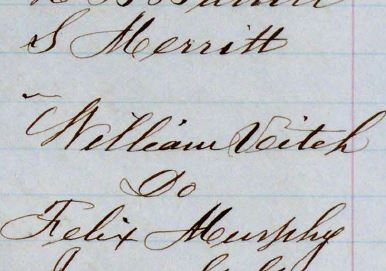 S Merritt
William Veitch
Do
Felix Murphy